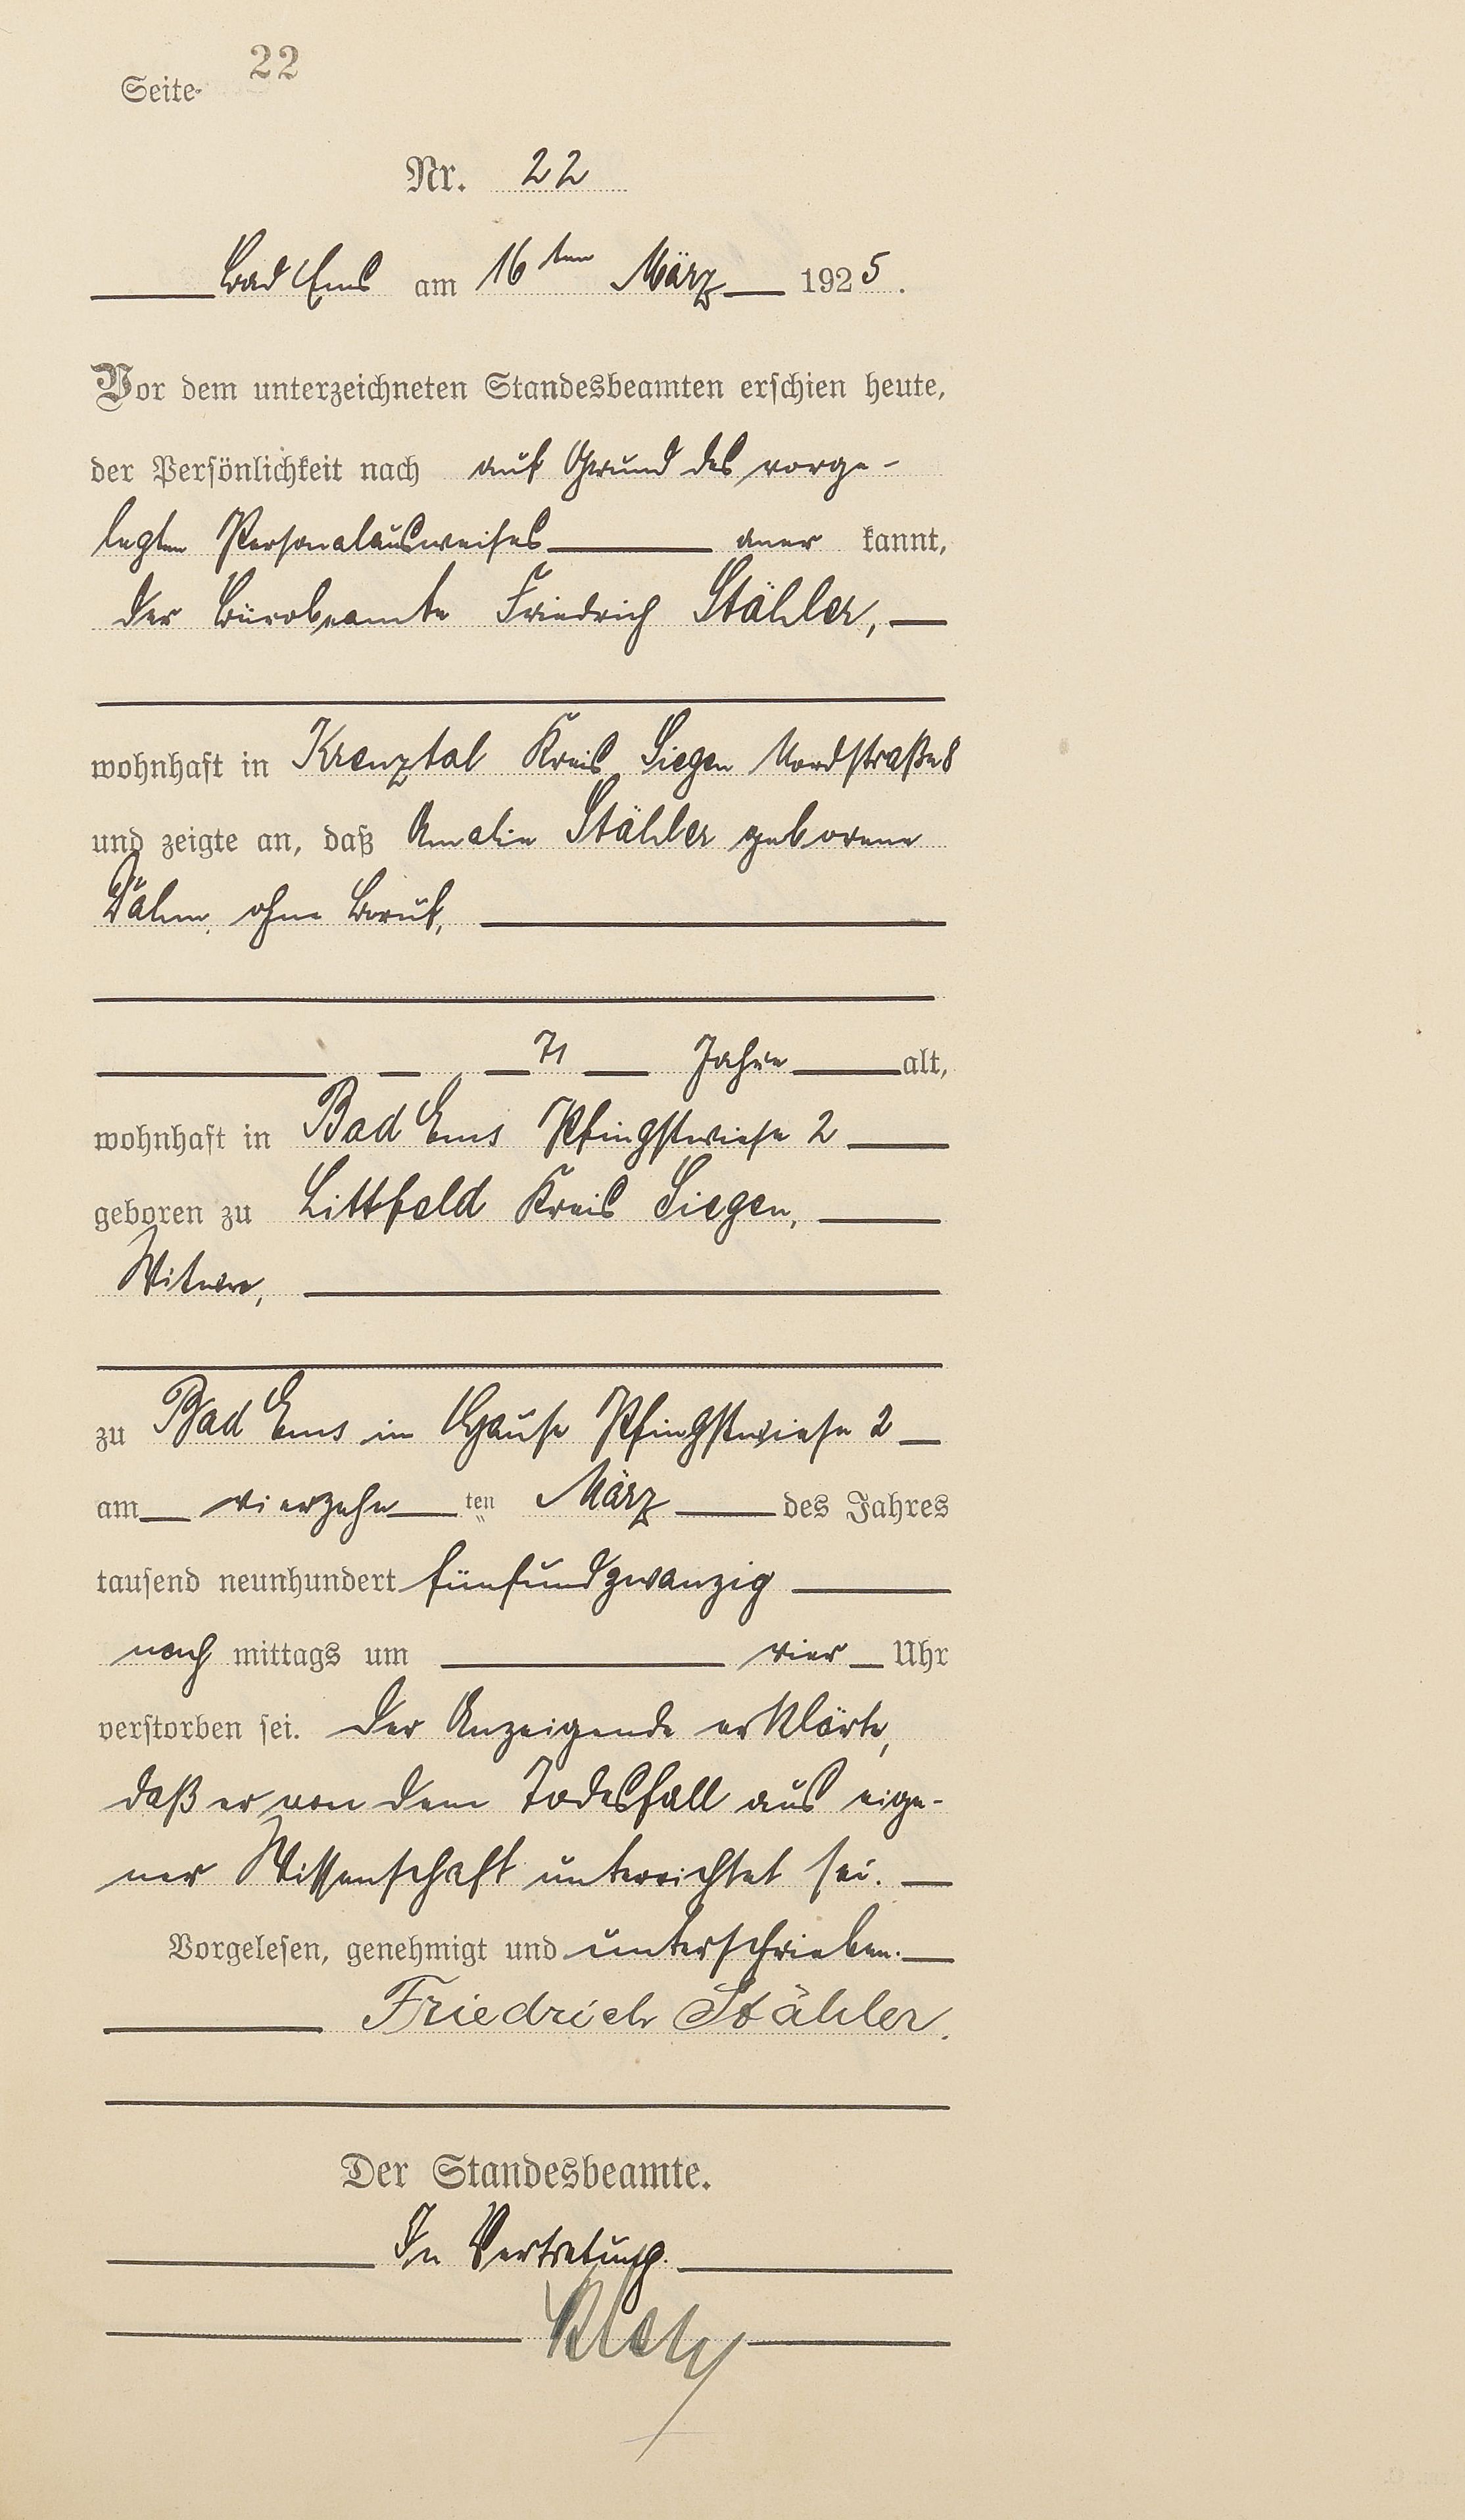 Seite 22
Nr. 22
Bad Ems am 16ten März 1925.
Vor dem unterzeichneten Standesbeamten erschien heute,
der Persönlichkeit nach auf Grund des vorge-
legten Personalausweises aner kannt,
der Bürobeamte Friedrich Stähler,
wohnhaft in Kreuztal Kreis Siegen Nordstraße 8
und zeigte an, daß Amalie Stähler geborene
ohne Beruf,
71 Jahre alt,
wohnhaft in Bad Ems Pfingstwiese 2
geboren zu Littfeld Kreis Siegen,
Witwe,
zu Bad Ems im Hause Pfingstwiese 2
am vierzehn ten März des Jahres
tausend neunhundert fünfundzwanzig
nach mittags um vier Uhr
verstorben sei. Der Anzeigende erklärte,
daß er von dem Todesfall aus eige-
ner Wissenschaft unterrichtet sei.
Vorgelesen, genehmigt und unterschrieben.
Friedrich Stähler.
Der Standesbeamte.
In Vertretung.